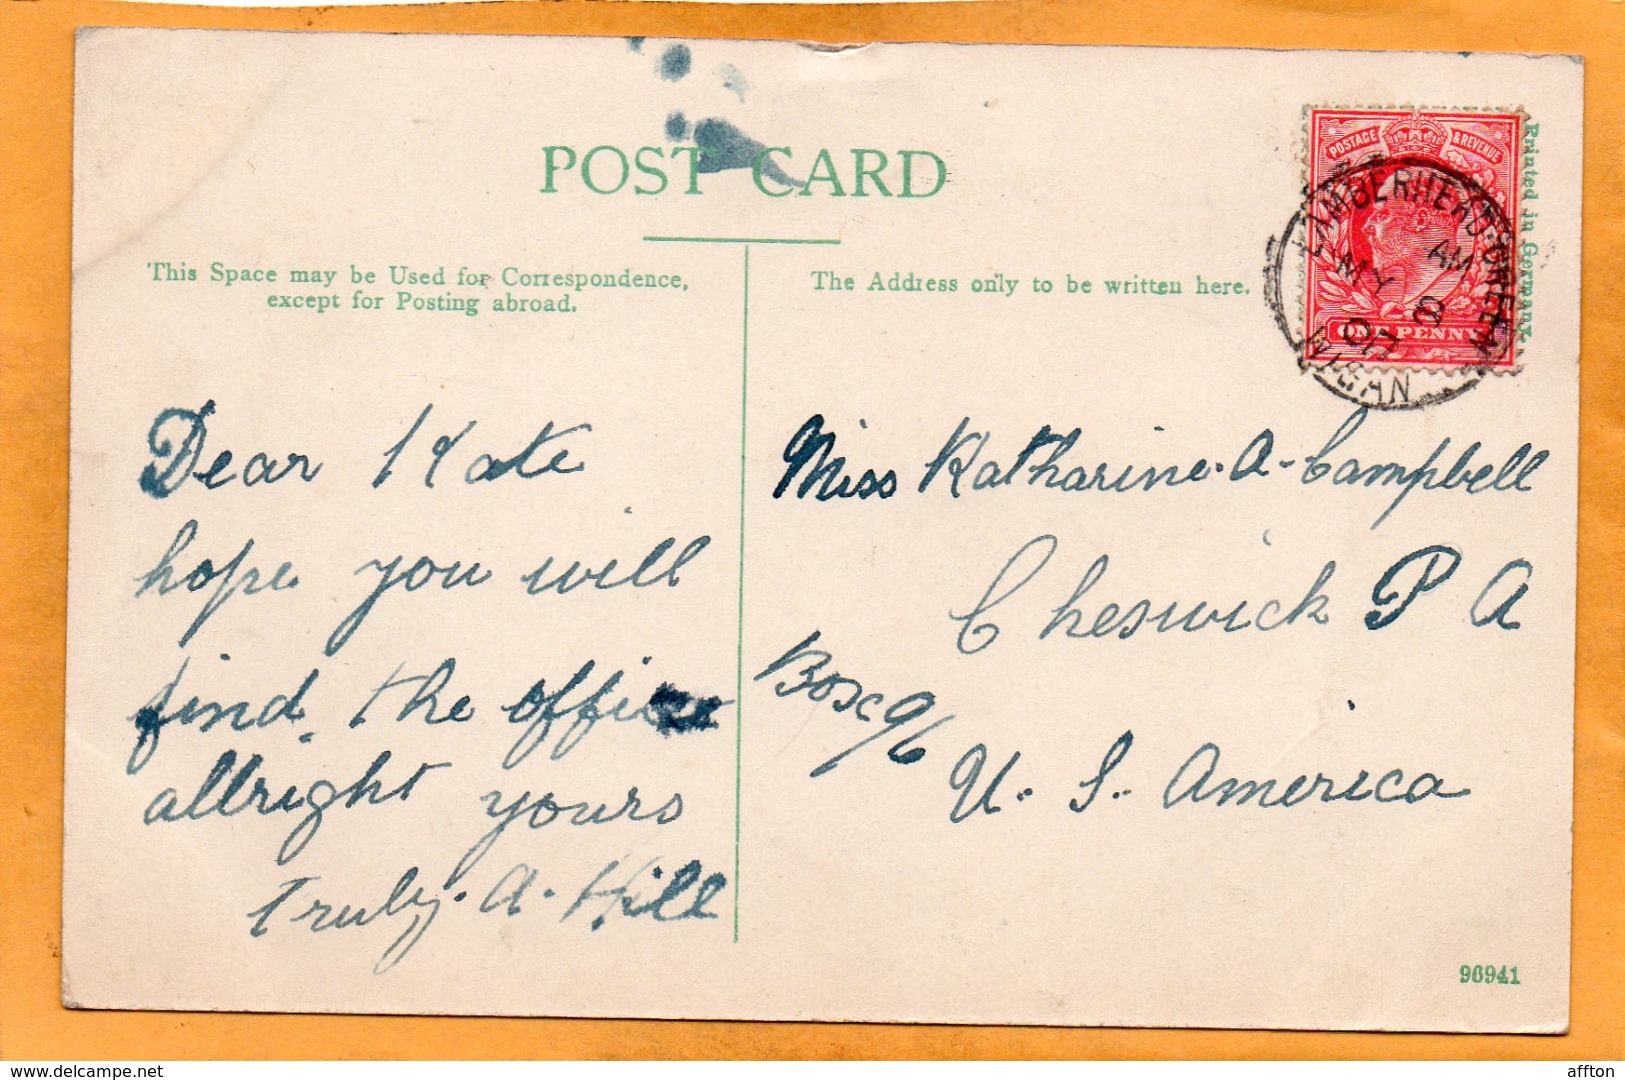 POST CARD
This Space may be Used for Correspondence,
except for Posting abroad.
The Address only to be written here.
Printed in Germany.
POSTAGE & REVENUE
ONE PENNY
LAMBERHEAD-GREEN
WIGAN
AM
MY 8
Dear Kate
hope you will
find the office
allright yours
Truly. A. Hill
Miss Katharine. A. Campbell
Cheswick P A
Box 96
U. S. America
96941
delcampe.net
affton